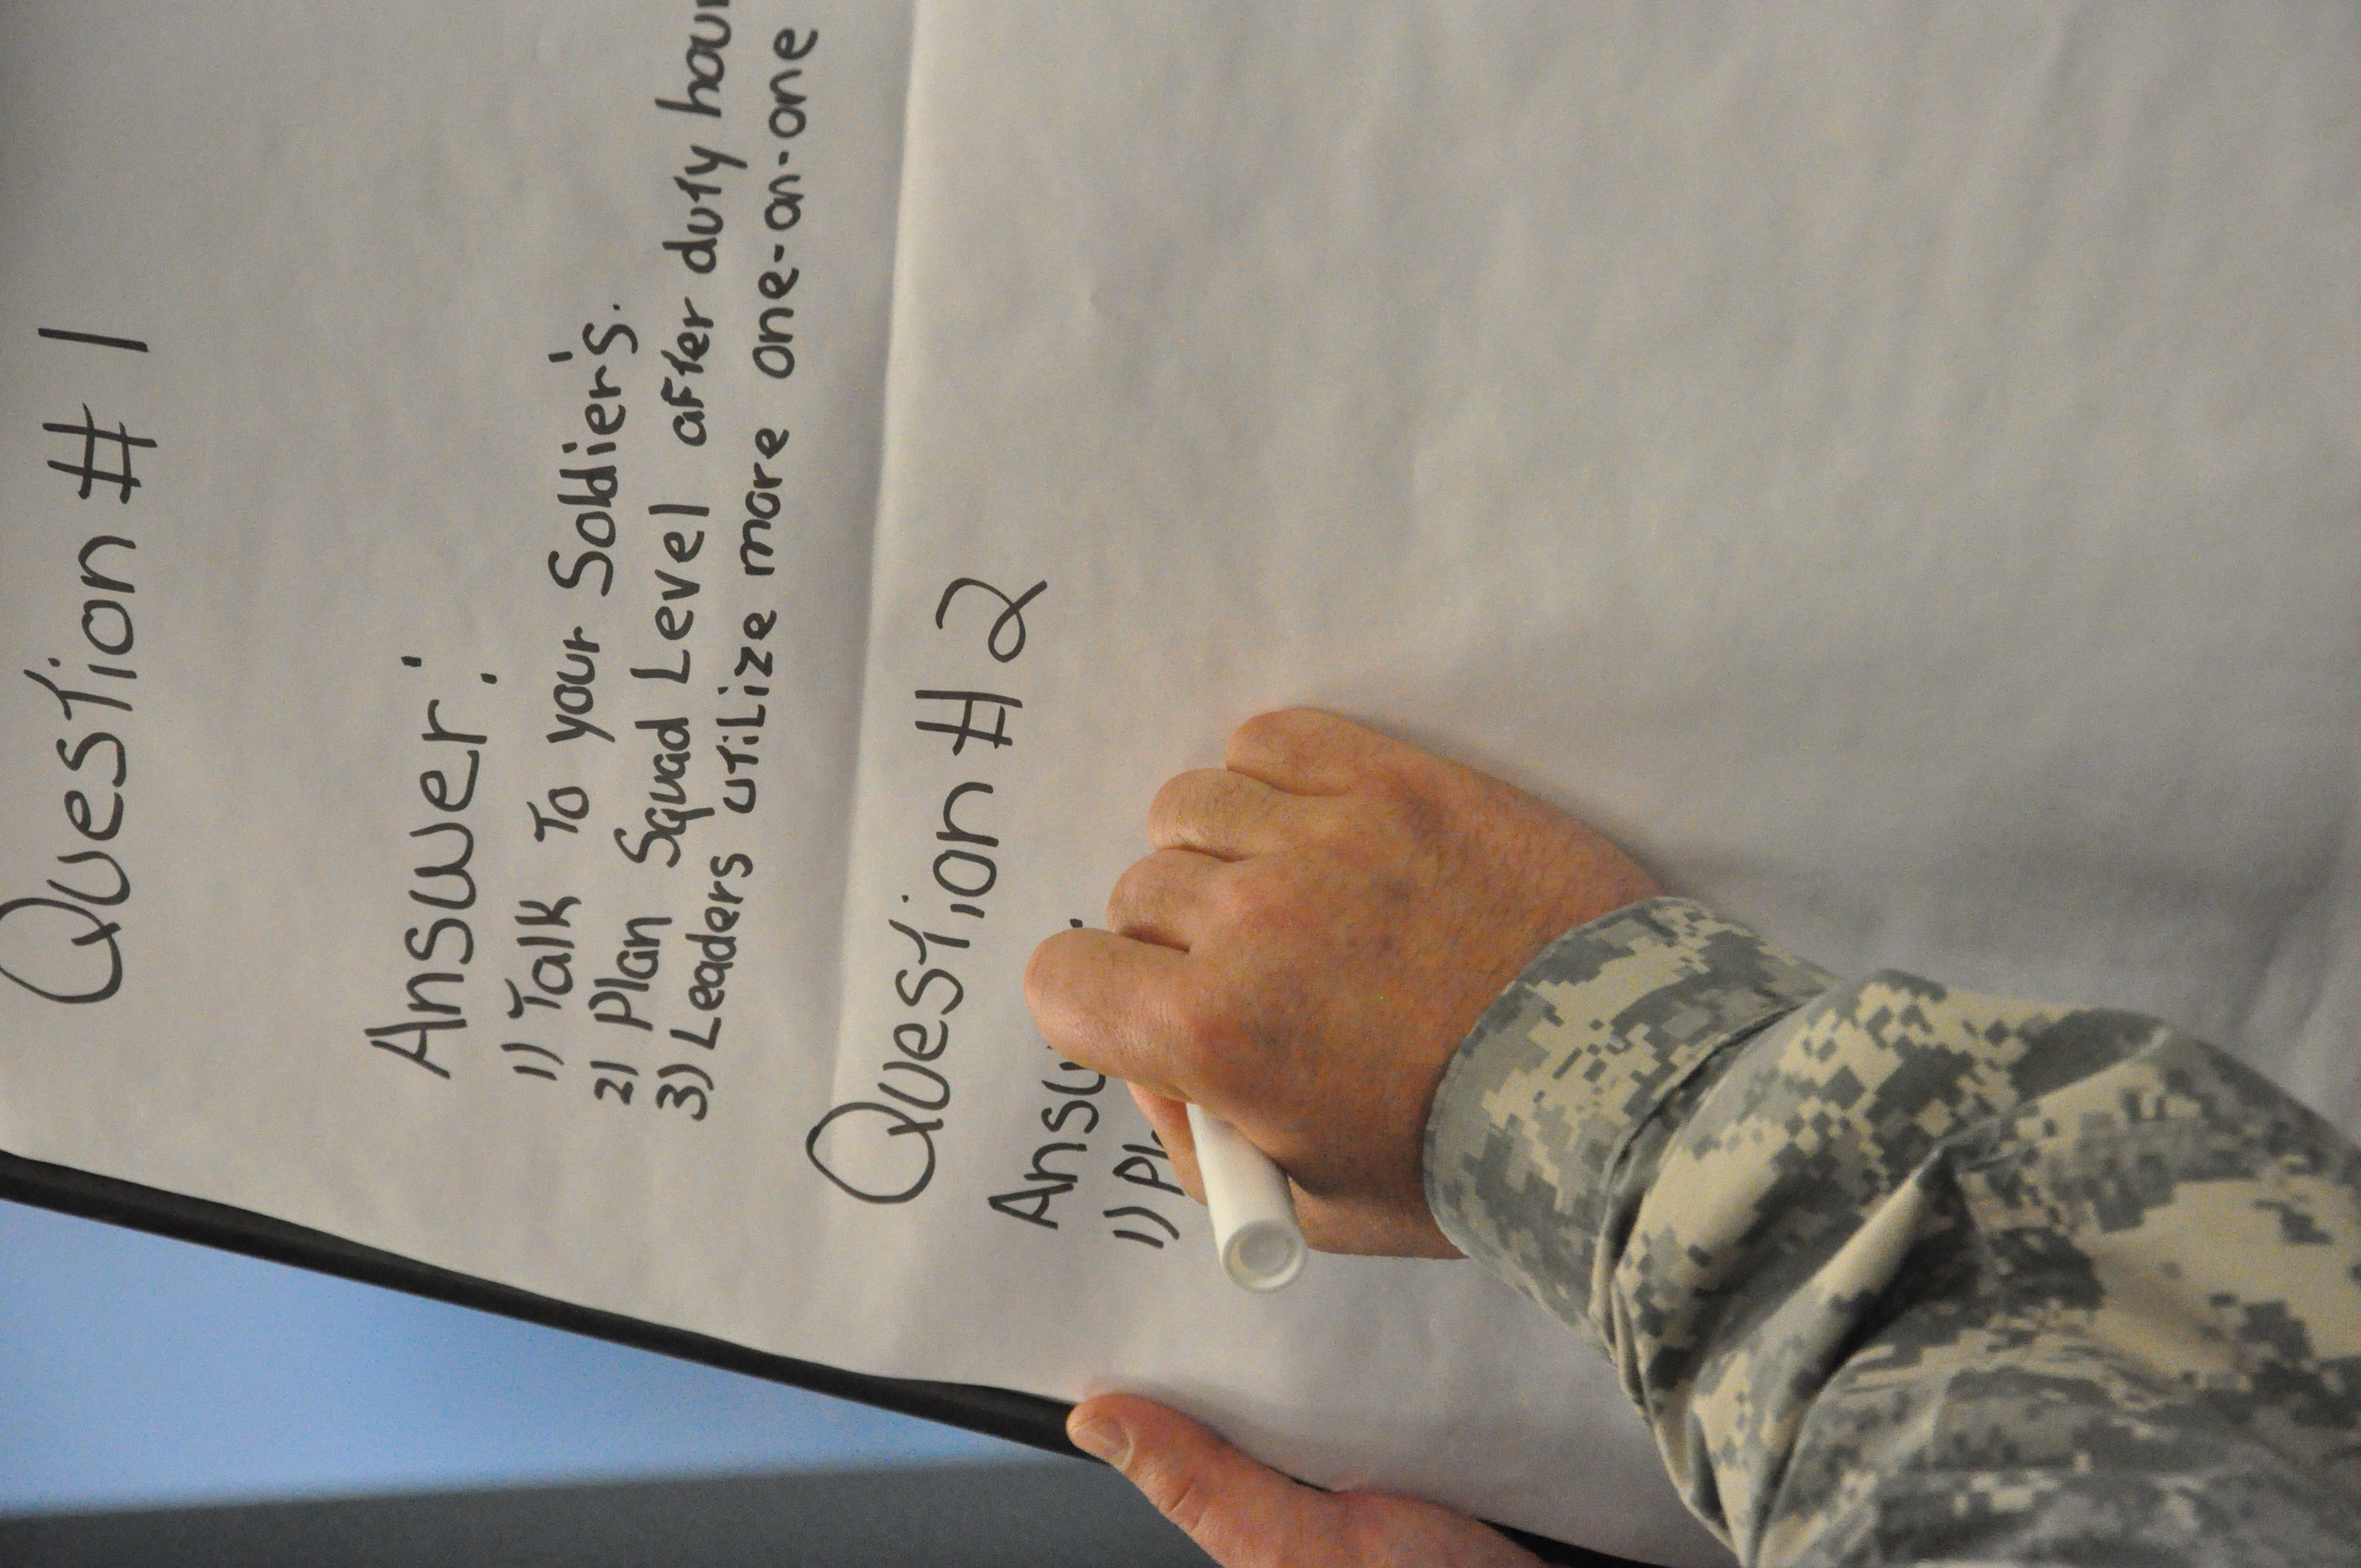 Question # 1
Answer:
1) Talk To your Soldier's.
2) Plan Squad Level after duty hour
3) Leaders utilize more one-on-one
Question # 2
Answ
1) Pl